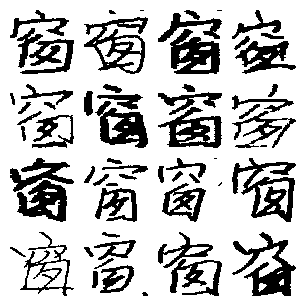 窗窗窗窗
窗窗窗窗
窗窗窗窗
窗窗窗窗